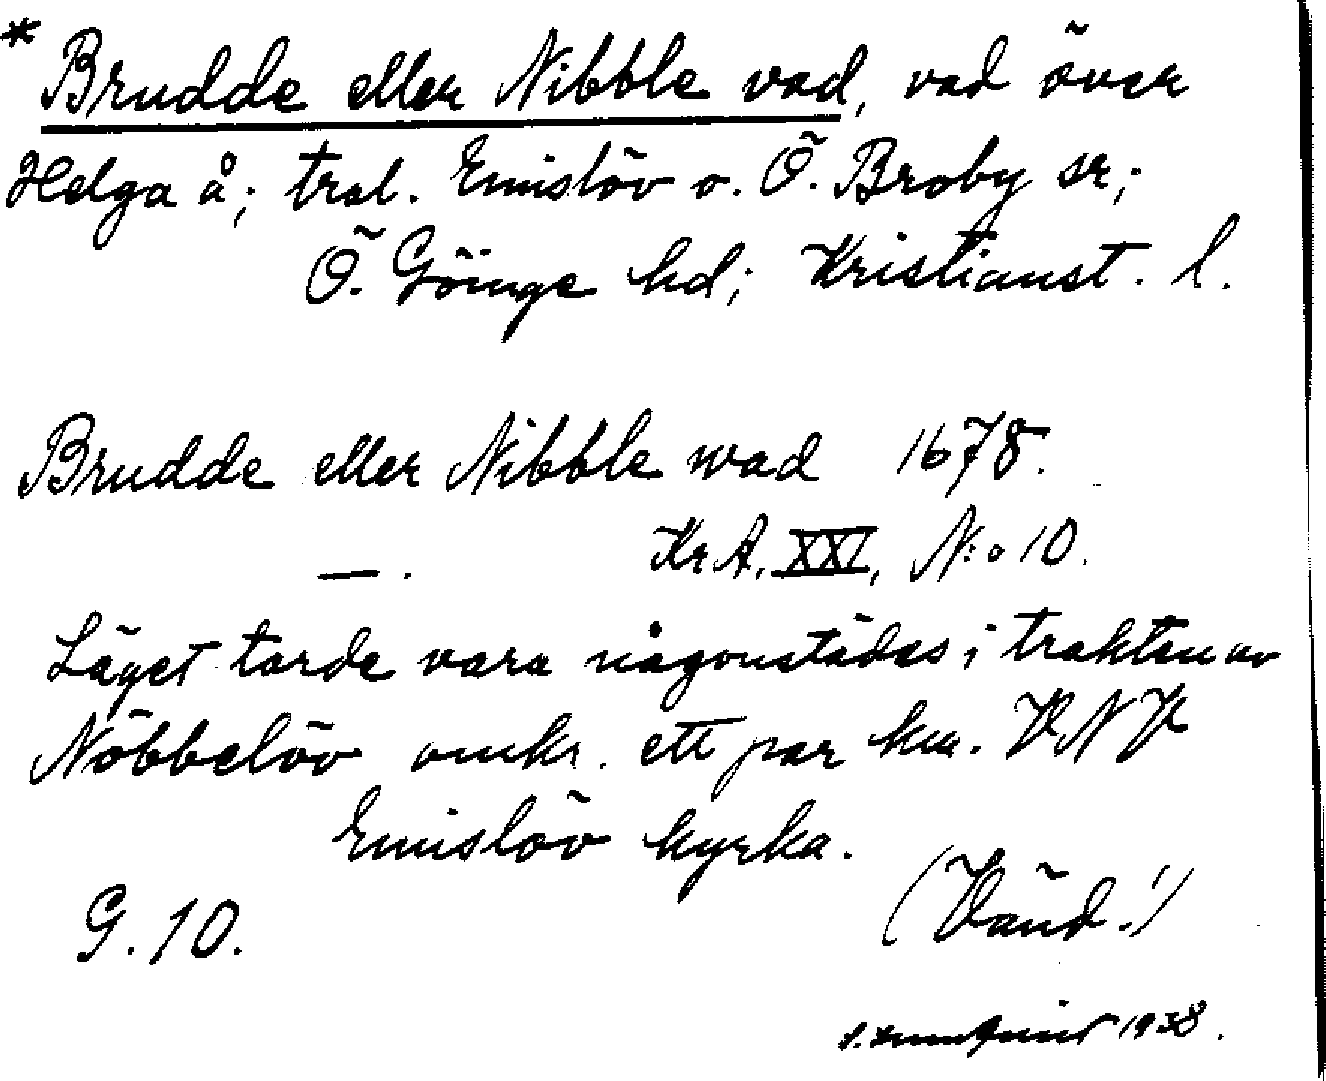 * Brudde eller Nibble vad, vad över
Helga å; tral. Emislöv o. Ö. Broby sr;
Ö. Göinge hd; Kristianst. l.
Brudde eller Nibble wad 1678.
— . KrA, XXI, N:o 10.
Läget torde vara någonstädes i trakten av
Nöbbelöv omkr. ett par km. VNV
Emislöv kyrka.
(Vänd!)
G. 10.
1938.